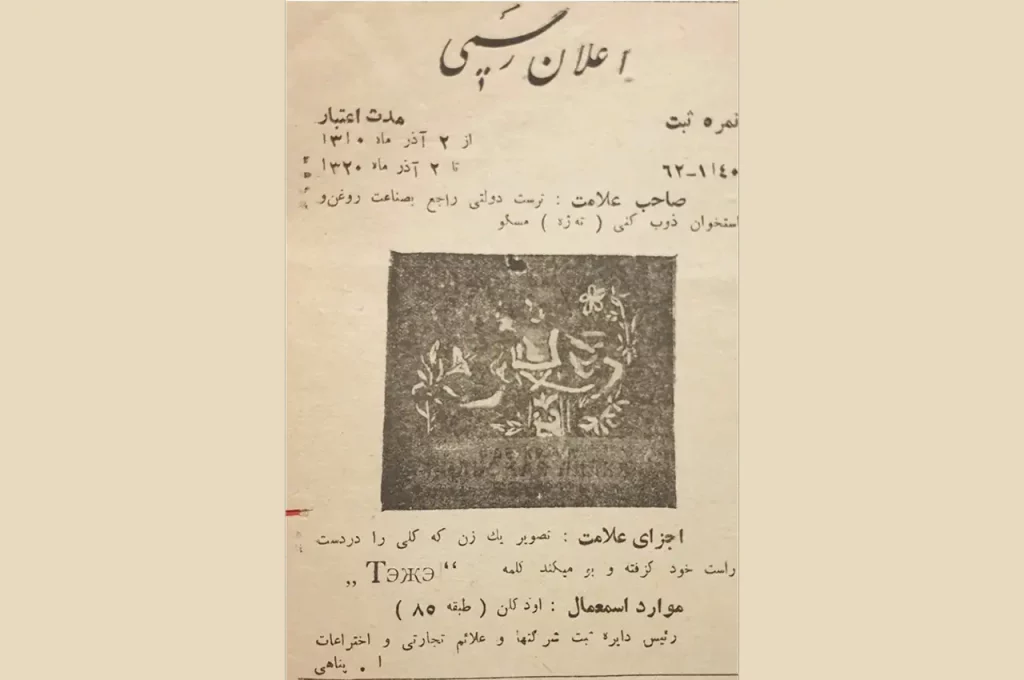 اعلان رسمی
نمره ثبت
مدت اعتبار
از ۲ آذر ماه ۱۳۱۰
۱۱۴۰–۶۲
تا ۲ آذر ماه ۱۳۲۰
صاحب علامت : ترست دولتی راجع بصناعت روغن و
استخوان ذوب کنی ( ته‌ژه ) مسکو
اجزای علامت : تصویر یك زن که گلی را دردست
راست خود گرفته و بو میکند کلمه “Тэжэ„
موارد استعمال : اودکلن ( طبقه ۸۵ )
رئیس دایره ثبت شرکتها و علائم تجارتی و اختراعات
ا . پناهی